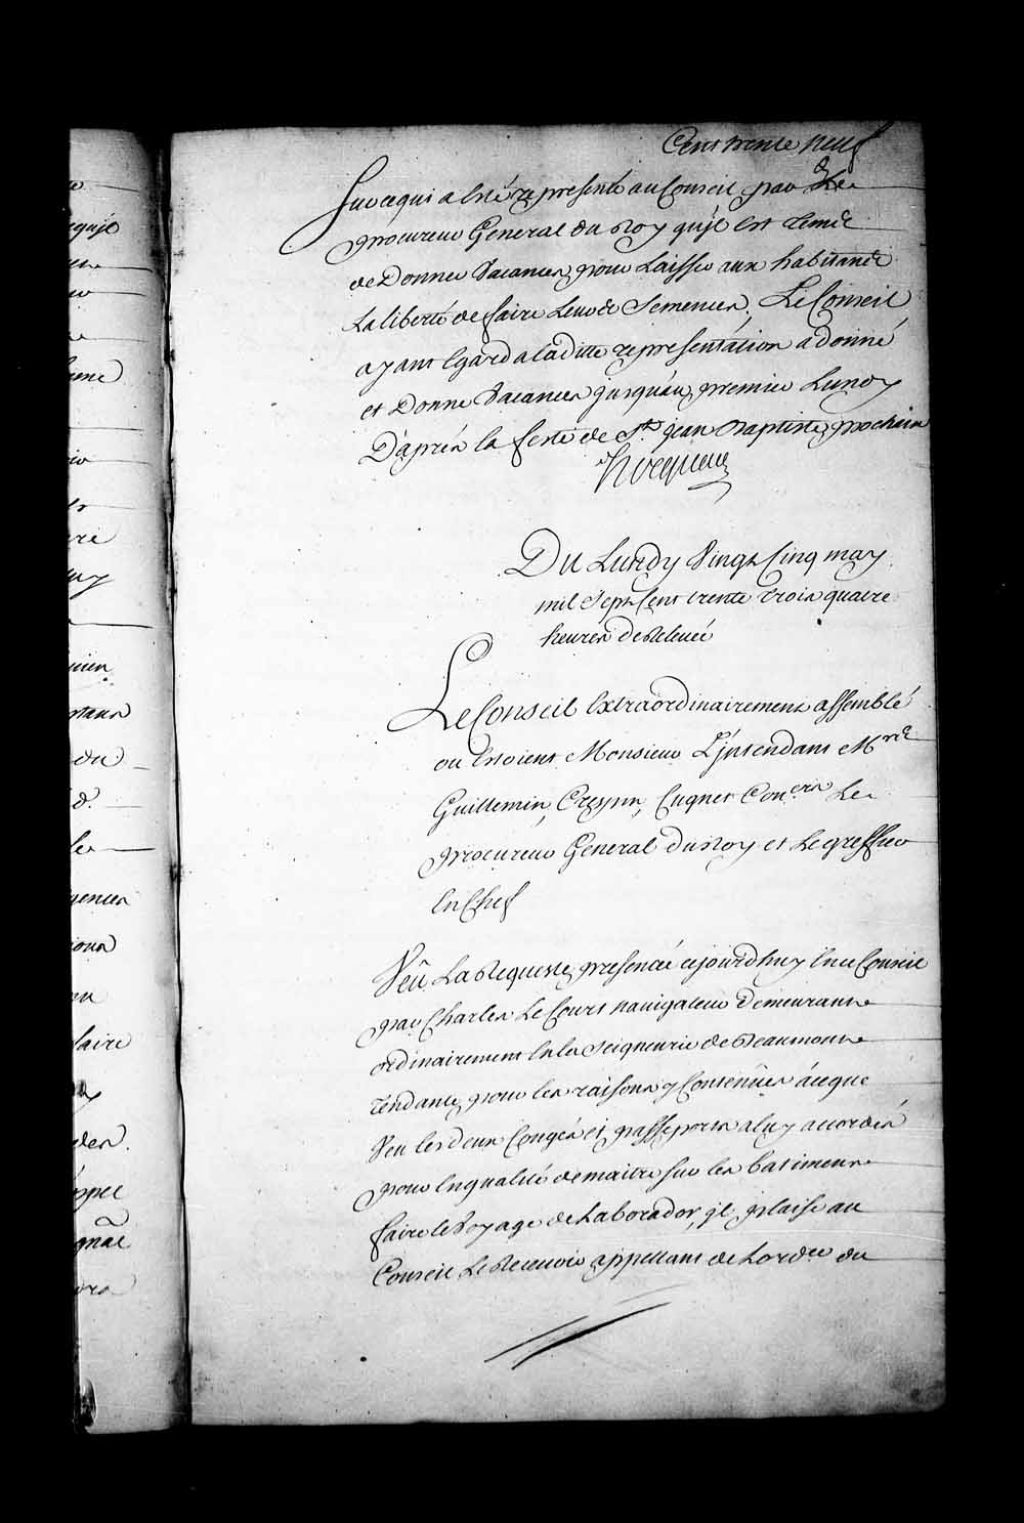 Cent trente neuf
Sur ce qui a esté représenté au Conseil par Le
procureur General du Roy qu'jl est temps
de Donner Vacances pour Laisser aux habitants
La liberté de faire Leurs Semences, Le Conseil
ayant Egard a la ditte représentation a donné
et Donne Vacances jusqu'au premier Lundy
D'après la feste de St. jean Baptiste prochain
Hocquart
Du Lundy Vingt Cinq may
mil Sept Cent trente trois quatre
heures de Relevée
Le Conseil Extraordinairement assemblé
ou Estoient Monsieur L'jntendant Mrs
Guillemin, Crespin, Cugnet Coners Le
procureur General du Roy et Le greffier
En Chef
Veû La Requeste presentée cejourd'huy En ce Conseil
par Charles Le Court navigateur Demeurant
ordinairement En la Seigneurie de Beaumont
tendante pour les raisons y Contenües à ce que
Veu les deux Congés et passeports a luy accordés
pour En qualité de maitre sur les batimens
faire le Voyage de Laborador, jl plaise au
Conseil Le Recevoir appellant de Lordre du
uje
ume
io
ure
uien
du
d.
ences
ions
laire
des.
ppel